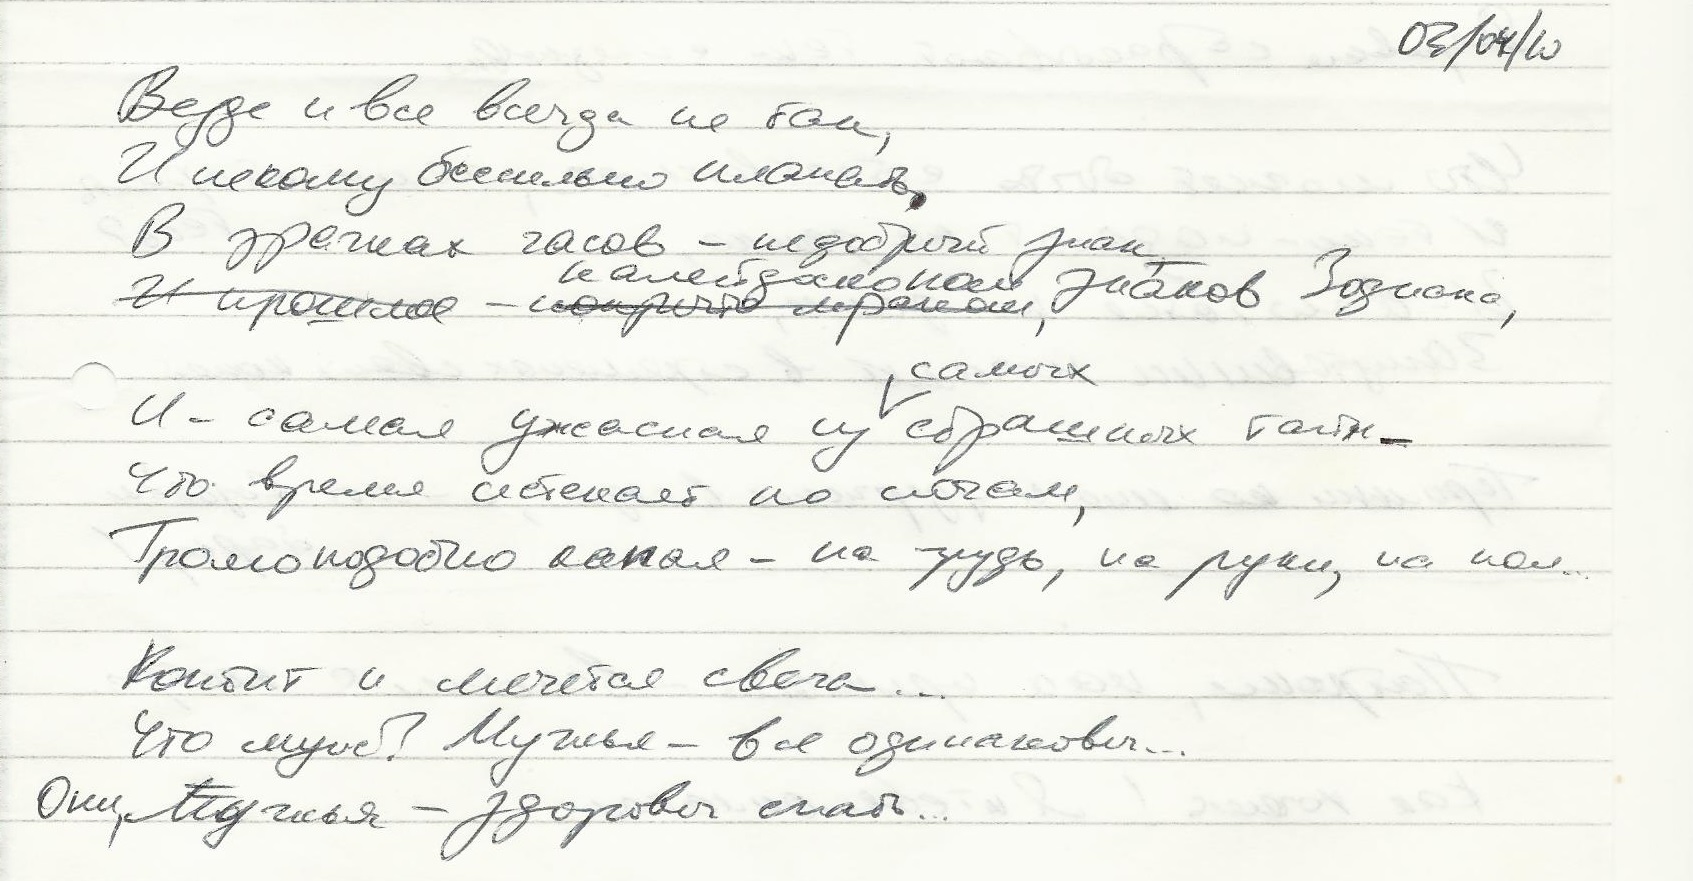 03/04/10
Везде и все всегда не так,
И некому бессильно плакать,
В зрачках часов – недобрый знак,
калейдоскопом
И прошлое – покрыто мраком, знаков Зодиака,
самых
И – самая ужасная из страшных тайн –
Что время истекает по ночам,
Громоподобно капая – на грудь, на руки, на пол...
Коптит и мечется свеча...
Что муж? Мужья – все одинаковы...
Они, Мужья – здоровы спать...